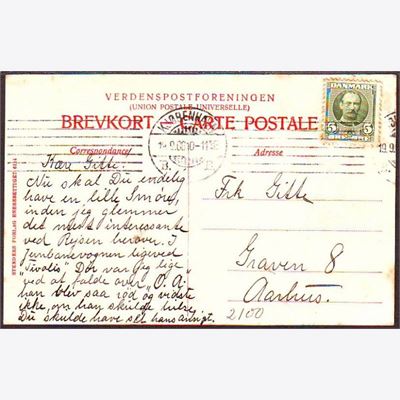 VERDENSPOSTFORENINGEN
(UNION POSTALE UNIVERSELLE)
BREVKORT. CARTE POSTALE
Correspondance
Adresse
DANMARK
5 5
KJØBENHAVN
B B
Kær Gitte.
Nu skal Du endelig
have en lille Smøre,
inden jeg glemmer
det mest interessante
ved Rejsen herover. I
Jernbanevognen ligeved
"Tivolis" Dør var jeg lige
ved at falde over "O. A."
han blev saa rød og vidste
ikke om han skulde hilse,
Du skulde have set hans ansigt.
Frk Gitte
Graven 8
Aarhus.
2100
STENDERS FORLAG